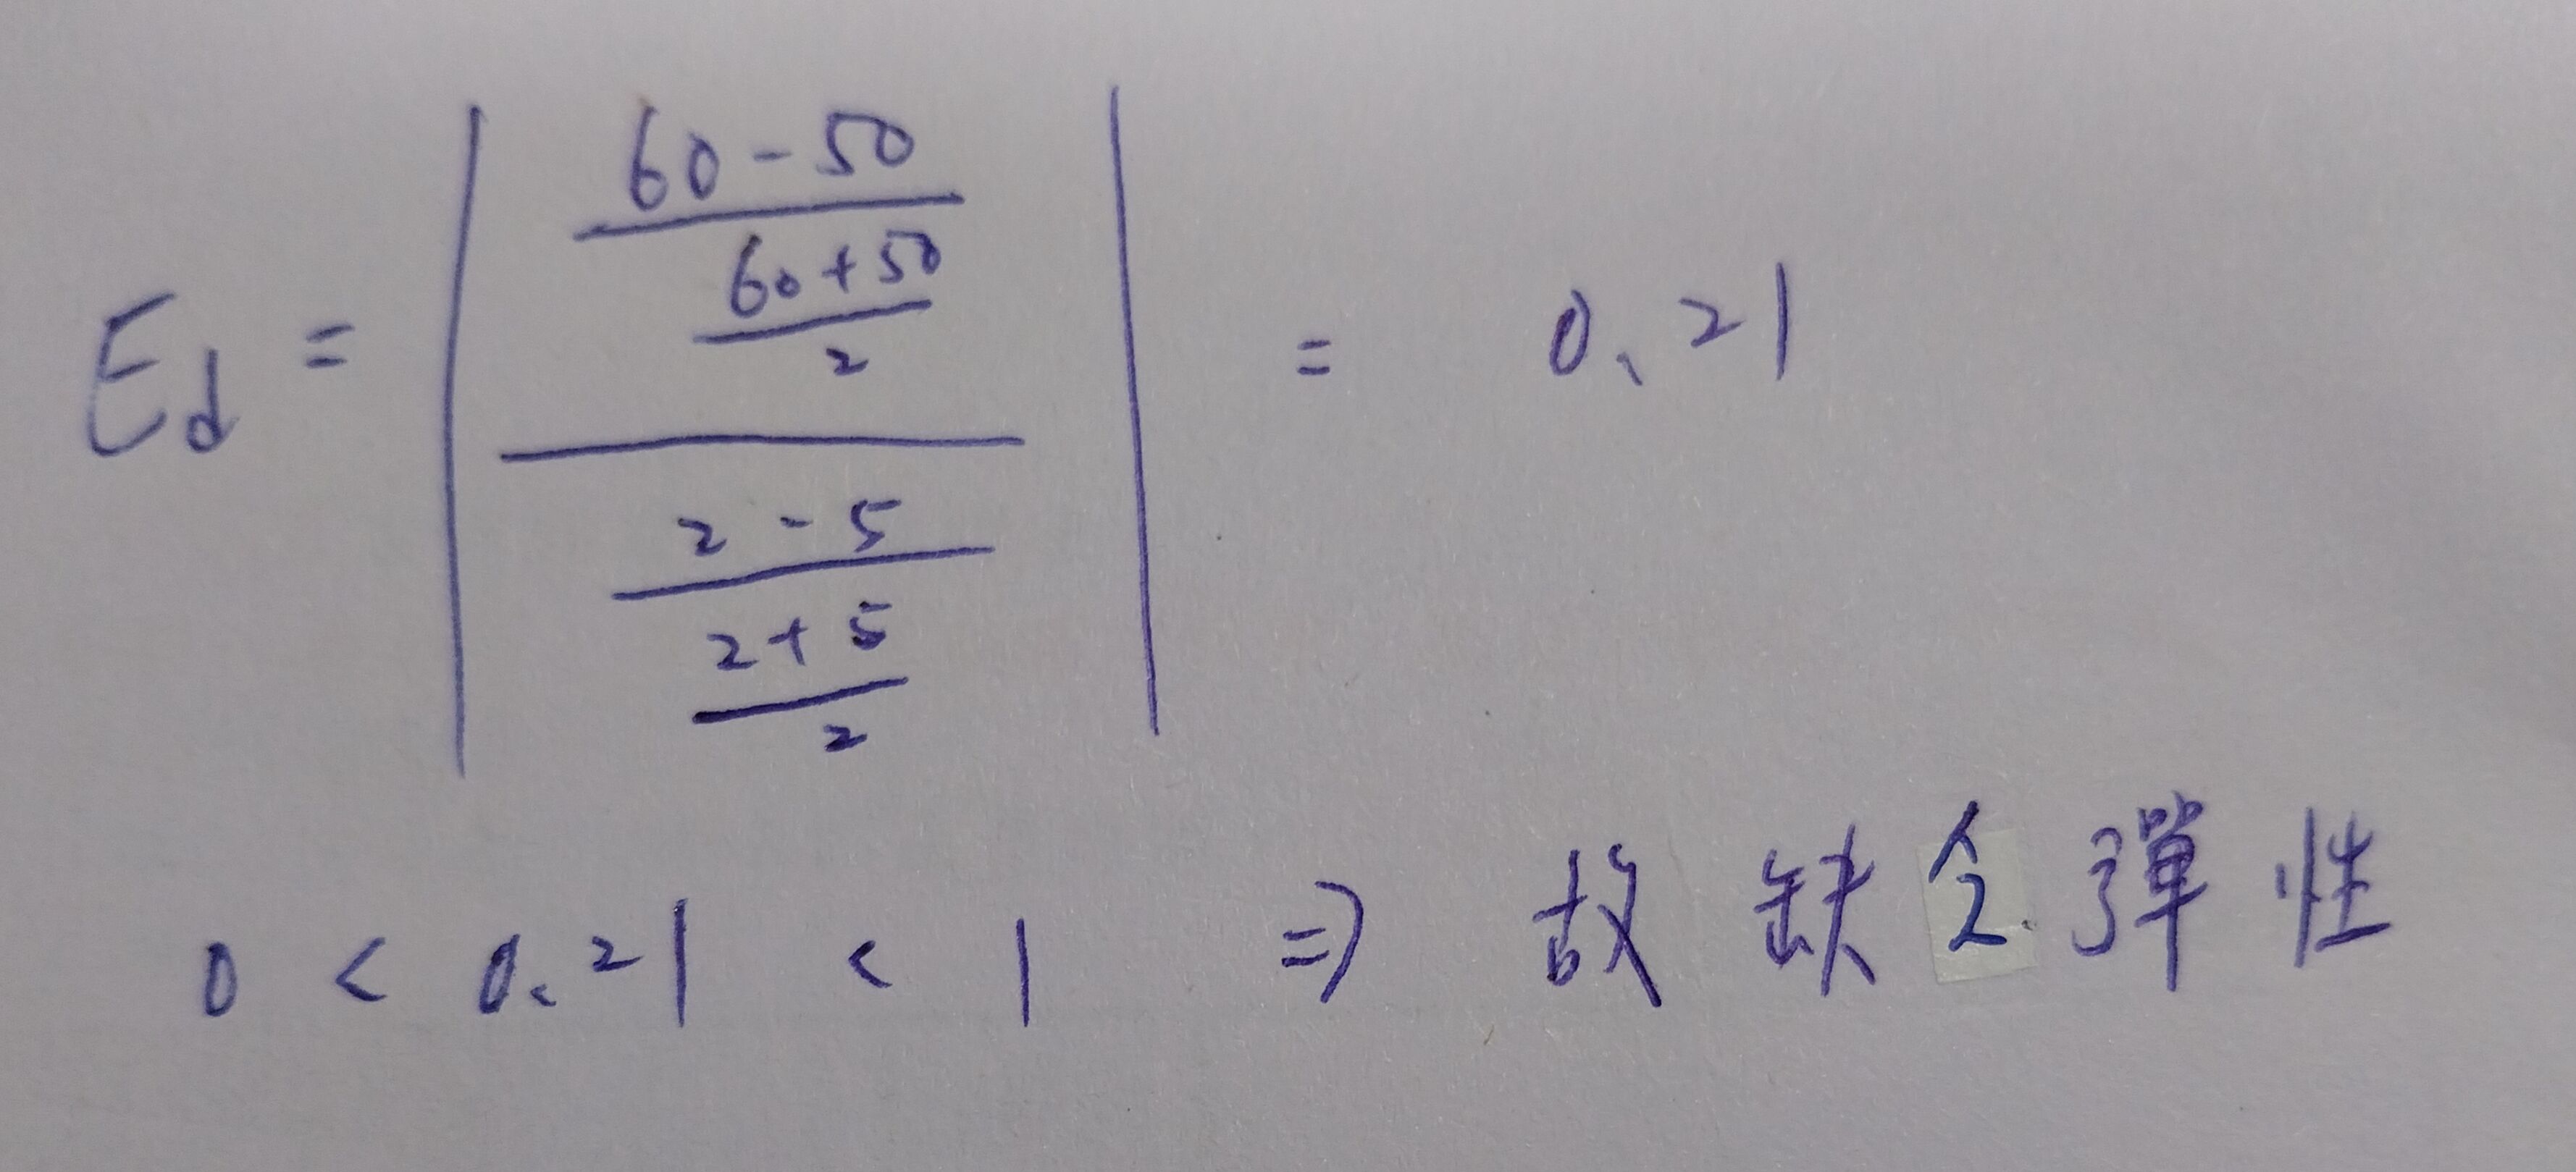 Ed = | (60-50)/((60+50)/2) / (2-5)/((2+5)/2) | = 0.21
0 < 0.21 < 1 ⇒ 故缺乏彈性